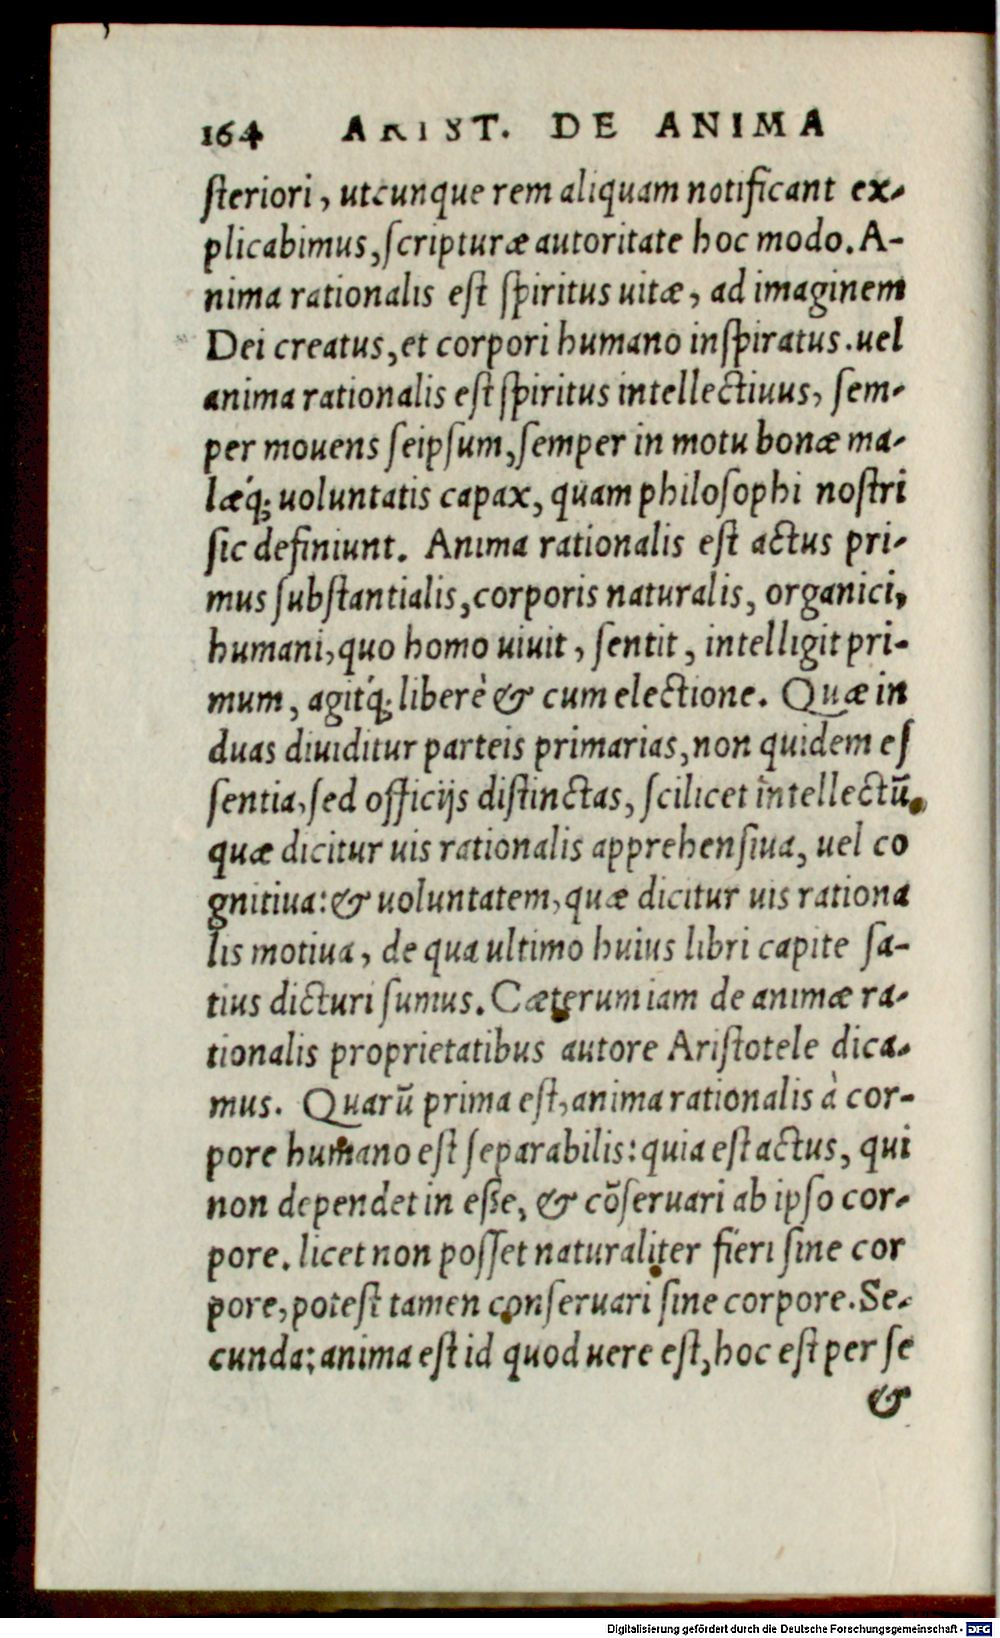 164 ARIST. DE ANIMA
ſteriori, utcunque rem aliquam notificant ex-
plicabimus, ſcripturæ autoritate hoc modo. A-
nima rationalis eſt ſpiritus uitæ, ad imaginem
Dei creatus, et corpori humano inſpiratus. uel
anima rationalis eſt ſpiritus intellectiuus, ſem-
per mouens ſeipſum, ſemper in motu bonæ ma-
læq́; uoluntatis capax, quam philoſophi noſtri
ſic definiunt. Anima rationalis eſt actus pri-
mus ſubſtantialis, corporis naturalis, organici,
humani, quo homo uiuit, ſentit, intelligit pri-
mum, agitq́; liberè & cum electione. Quæ in
duas diuiditur parteis primarias, non quidem eſ
ſentia, ſed officijs diſtinctas, ſcilicet intellectū,
quæ dicitur uis rationalis apprehenſiua, uel co
gnitiua: & uoluntatem, quæ dicitur uis rationa
lis motiua, de qua ultimo huius libri capite ſa-
tius dicturi ſumus. Cæterum iam de animæ ra-
tionalis proprietatibus autore Ariſtotele dica-
mus. Quarū prima eſt, anima rationalis à cor-
pore humano eſt ſeparabilis: quia eſt actus, qui
non dependet in eſſe, & cōſeruari ab ipſo cor-
pore. licet non poſſet naturaliter fieri ſine cor
pore, poteſt tamen conſeruari ſine corpore. Se-
cunda: anima eſt id quod uere eſt, hoc eſt per ſe
&
Digitalisierung gefördert durch die Deutsche Forschungsgemeinschaft - DFG